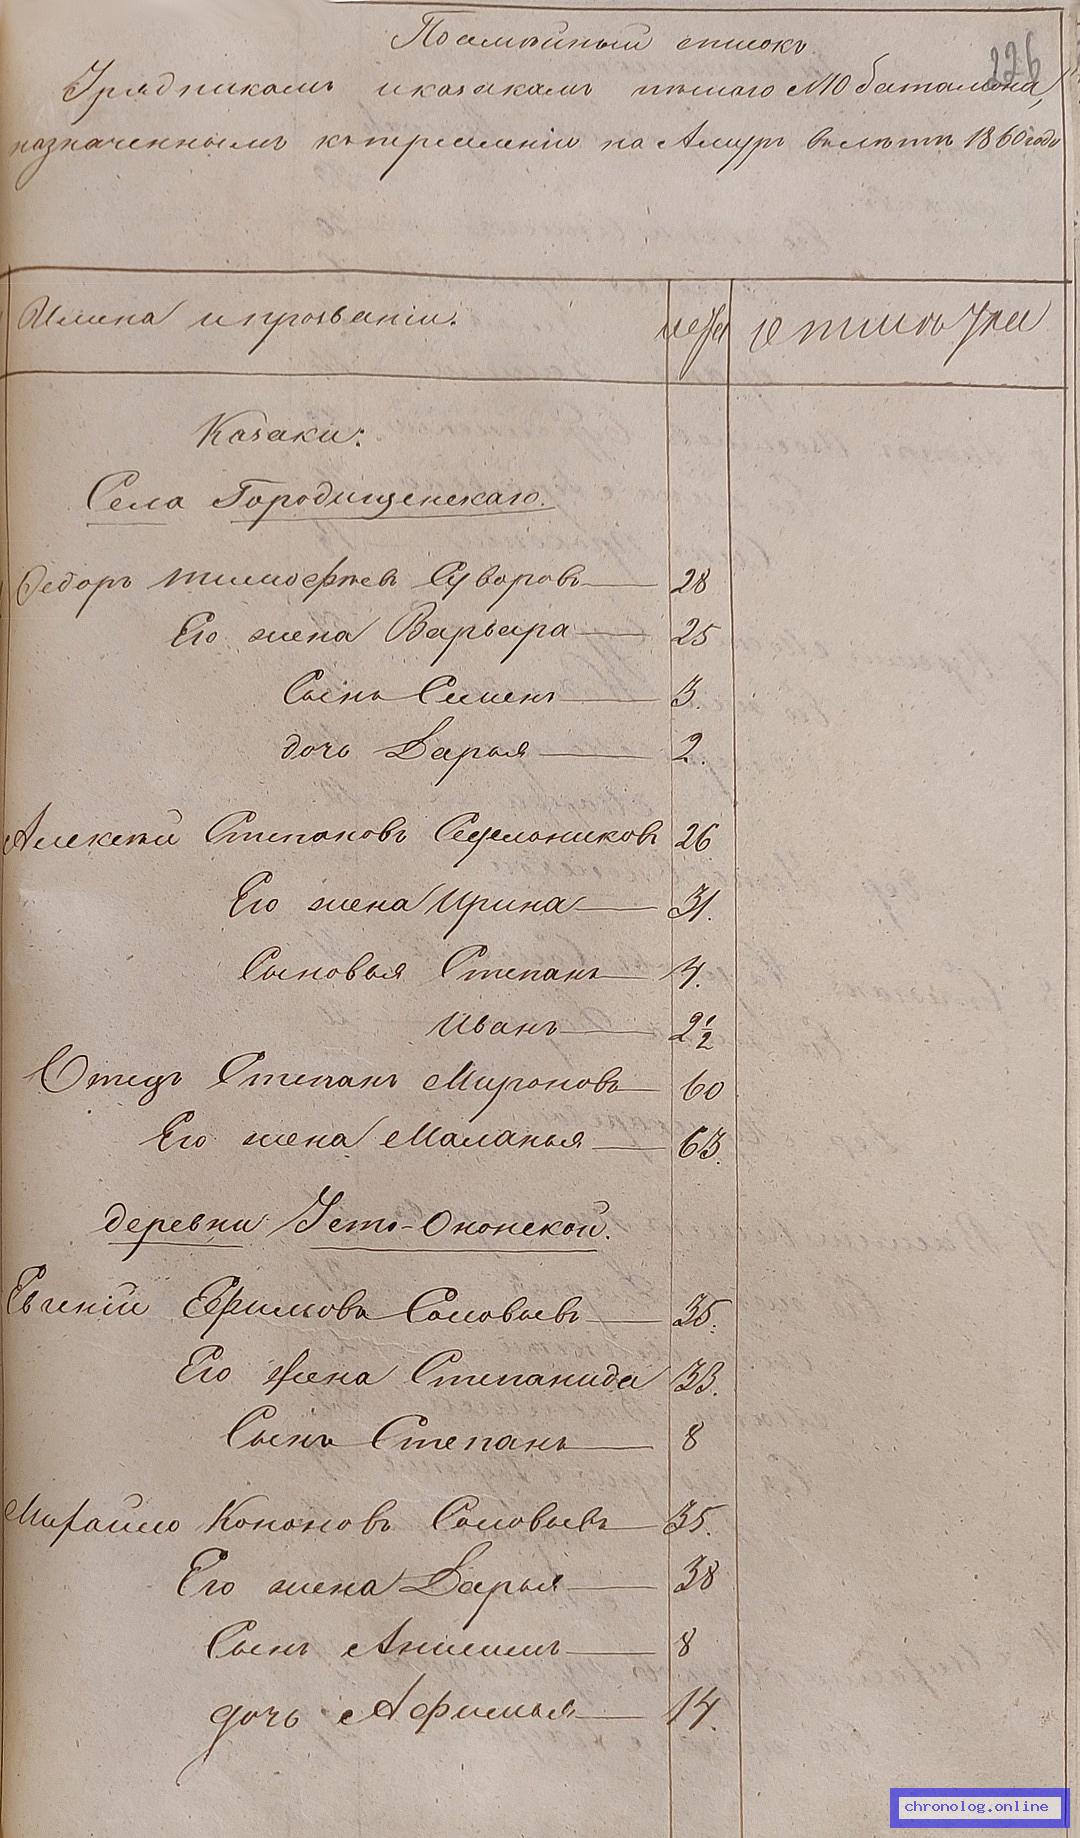 Посемѣйный списокъ
226
Урядникамъ и казакамъ пѣшаго №10 баталіона,
назначеннымъ къ переселенію на Амуръ въ лѣто 1860 года
Имена и прозваніи.
лета
Отметки
Казаки:
Села Городищенскаго.
Федоръ Тимофѣевъ Суворовъ 28
Его жена Варвара 25
Сынъ Семенъ 3.
дочь Дарья 2.
Алексѣй Степановъ Седельниковъ 26
Его жена Ирина 31.
Сыновья Степанъ 4.
Иванъ 2½
Отецъ Степанъ Мироновъ 60
Его жена Маланья 63.
деревни Усть-Ононской.
Евгеній Ефимовъ Соловьевъ 35.
Его жена Степанида 33.
Сынъ Степанъ 8
Михайло Кононовъ Соловьевъ 35.
Его жена Дарья 38
Сынъ Анисимъ 8
дочь Афимья 14.
chronolog.online